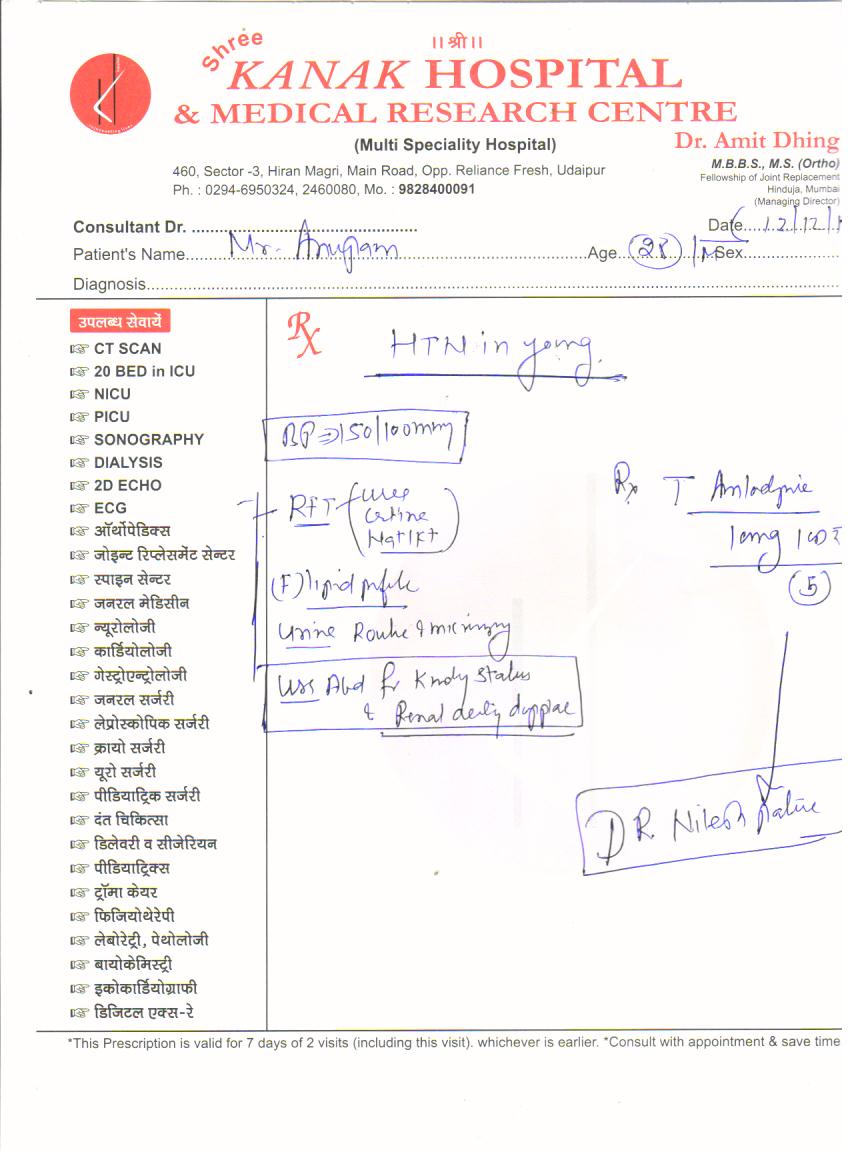 Shree
।।श्री।।
KANAK HOSPITAL
& MEDICAL RESEARCH CENTRE
(Multi Speciality Hospital)
Dr. Amit Dhing
M.B.B.S., M.S. (Ortho)
Fellowship of Joint Replacement
Hinduja, Mumbai
(Managing Director)
460, Sector -3, Hiran Magri, Main Road, Opp. Reliance Fresh, Udaipur
Ph. : 0294-6950324, 2460080, Mo. : 9828400091
Consultant Dr. ............ Date 12/12/1
Patient's Name Mr. Anupam Age 28 /M Sex
Diagnosis
उपलब्ध सेवायें
CT SCAN
20 BED in ICU
NICU
PICU
SONOGRAPHY
DIALYSIS
2D ECHO
ECG
ऑर्थोपेडिक्स
जोइन्ट रिप्लेसमेंट सेन्टर
स्पाइन सेन्टर
जनरल मेडिसीन
न्यूरोलोजी
कार्डियोलोजी
गेस्ट्रोएन्ट्रोलोजी
जनरल सर्जरी
लेप्रोस्कोपिक सर्जरी
क्रायो सर्जरी
यूरो सर्जरी
पीडियाट्रिक सर्जरी
दंत चिकित्सा
डिलेवरी व सीजेरियन
पीडियाट्रिक्स
ट्रॉमा केयर
फिजियोथेरेपी
लेबोरेट्री, पेथोलोजी
बायोकेमिस्ट्री
इकोकार्डियोग्राफी
डिजिटल एक्स-रे
Rx
HTN in young
BP⇒150/100mm
RFT
Na+/K+
(F) lipid profile
Urine Routine & microscopy
USS Abd for Kidney Status
& Renal doppler
Rx T Amlodpine
10mg 1 OD
(5)
DR. Nilesh
*This Prescription is valid for 7 days of 2 visits (including this visit). whichever is earlier. *Consult with appointment & save time